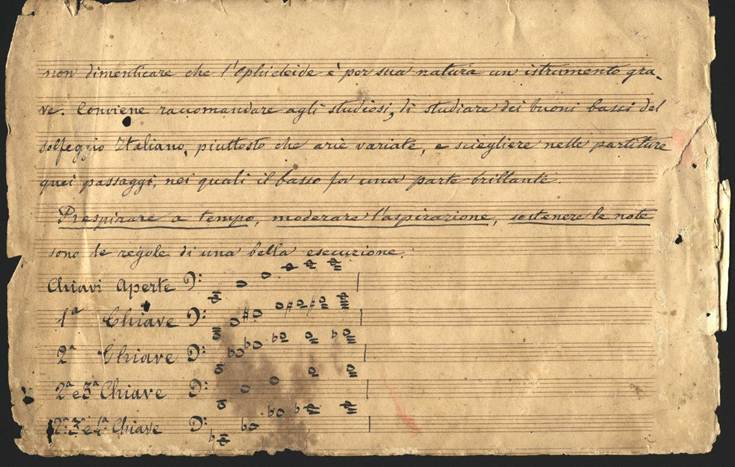 non dimenticare che l'Ophicleide è per sua natura un istrumento gra-
ve. Conviene raccomandare agli studiosi, di studiare dei buoni bassi del
solfeggio Italiano, piuttosto che arie variate, e sciegliere nelle partiture
quei passaggi, nei quali il basso fa una parte brillante.
Respirare a tempo, moderare l'aspirazione, sostenere le note
sono le regole di una bella esecuzione.
Chiavi Aperte
1ª Chiave
2ª Chiave
2ª e 3ª Chiave
2ª 3ª e 4ª Chiave